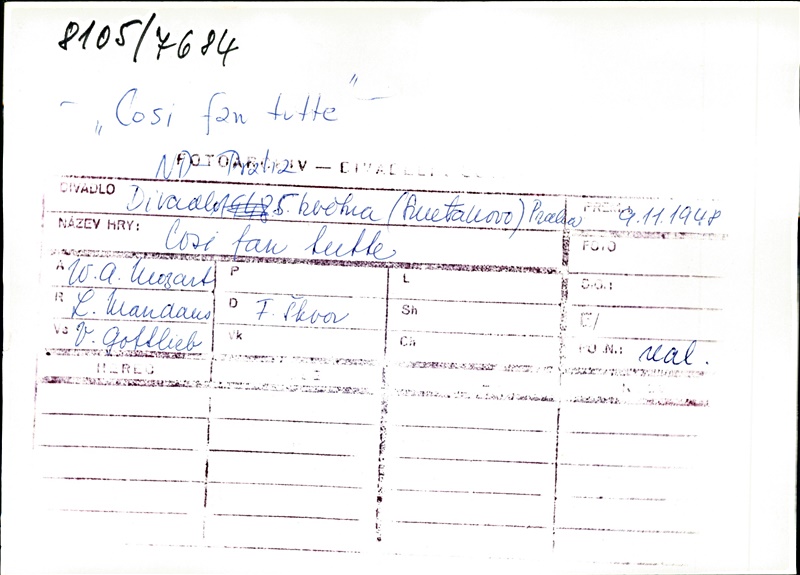 8105/7684
- „Cosi fan tutte" -
ND Praha
FOTOARCHIV — DIVADELNÍ
DIVADLO Divadlo 5. května (Smetanovo) Praha PREM. 9.11.1948
NÁZEV HRY: Cosi fan tutte FOTO
A W. A. Mozart P L
R L. Mandaus D F. Škvor Sh
VS V. Gottlieb Vk Ch Č/
POZN.: real.
HEREC